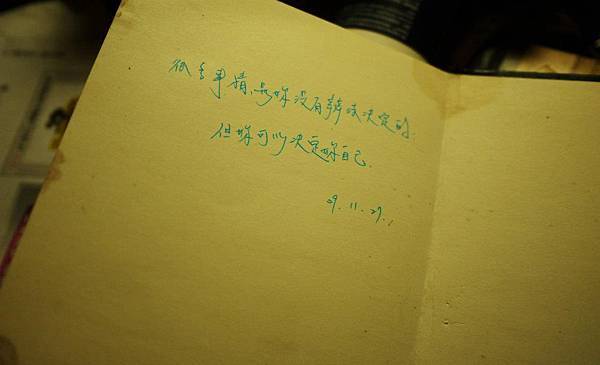 很多事情,是妳没有辦法決定的.
但妳可以決定妳自己.
09.11.29.,